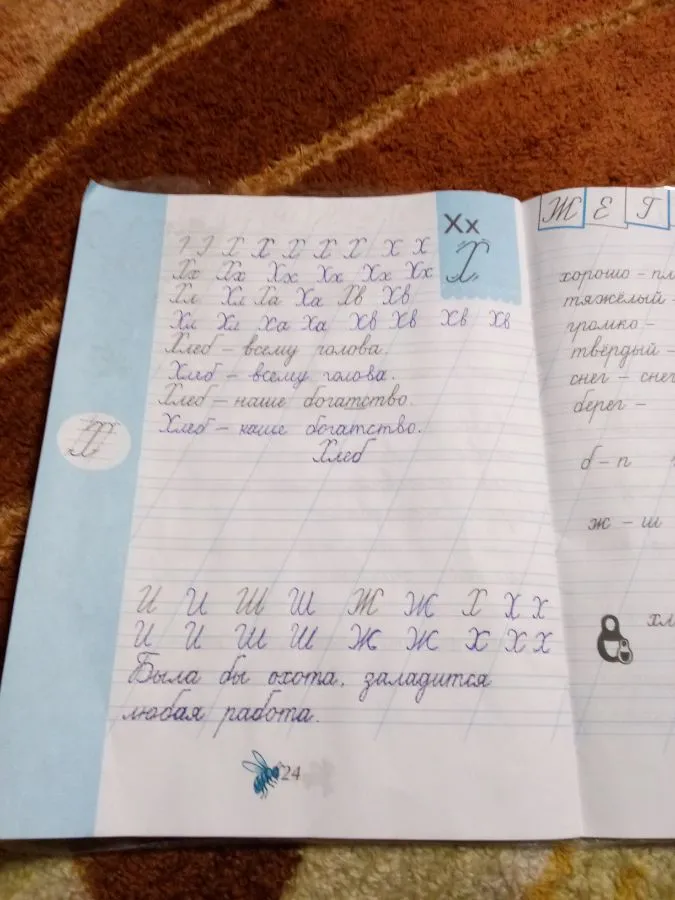 Хх
Х
I I Х Х Х Х Х х Х
Хх Хх Хх Хх Хх Хх
Хл Хл Ха Ха Хв Хв
Хл Хл Ха Ха Хв Хв Хв Хв
Хлеб – всему голова.
Хлеб – всему голова.
Хлеб – наше богатство.
Хлеб – наше богатство.
Хлеб
Х
И И Ш Ш Ж Ж Х Х Х
И И Ш Ш Ж Ж Х Х Х
Была бы охота, заладится
любая работа.
24
Ж Е Г
хорошо – пл
тяжёлый –
громко –
твёрдый –
снег – снег
берег –
б – п
ж – ш
хл